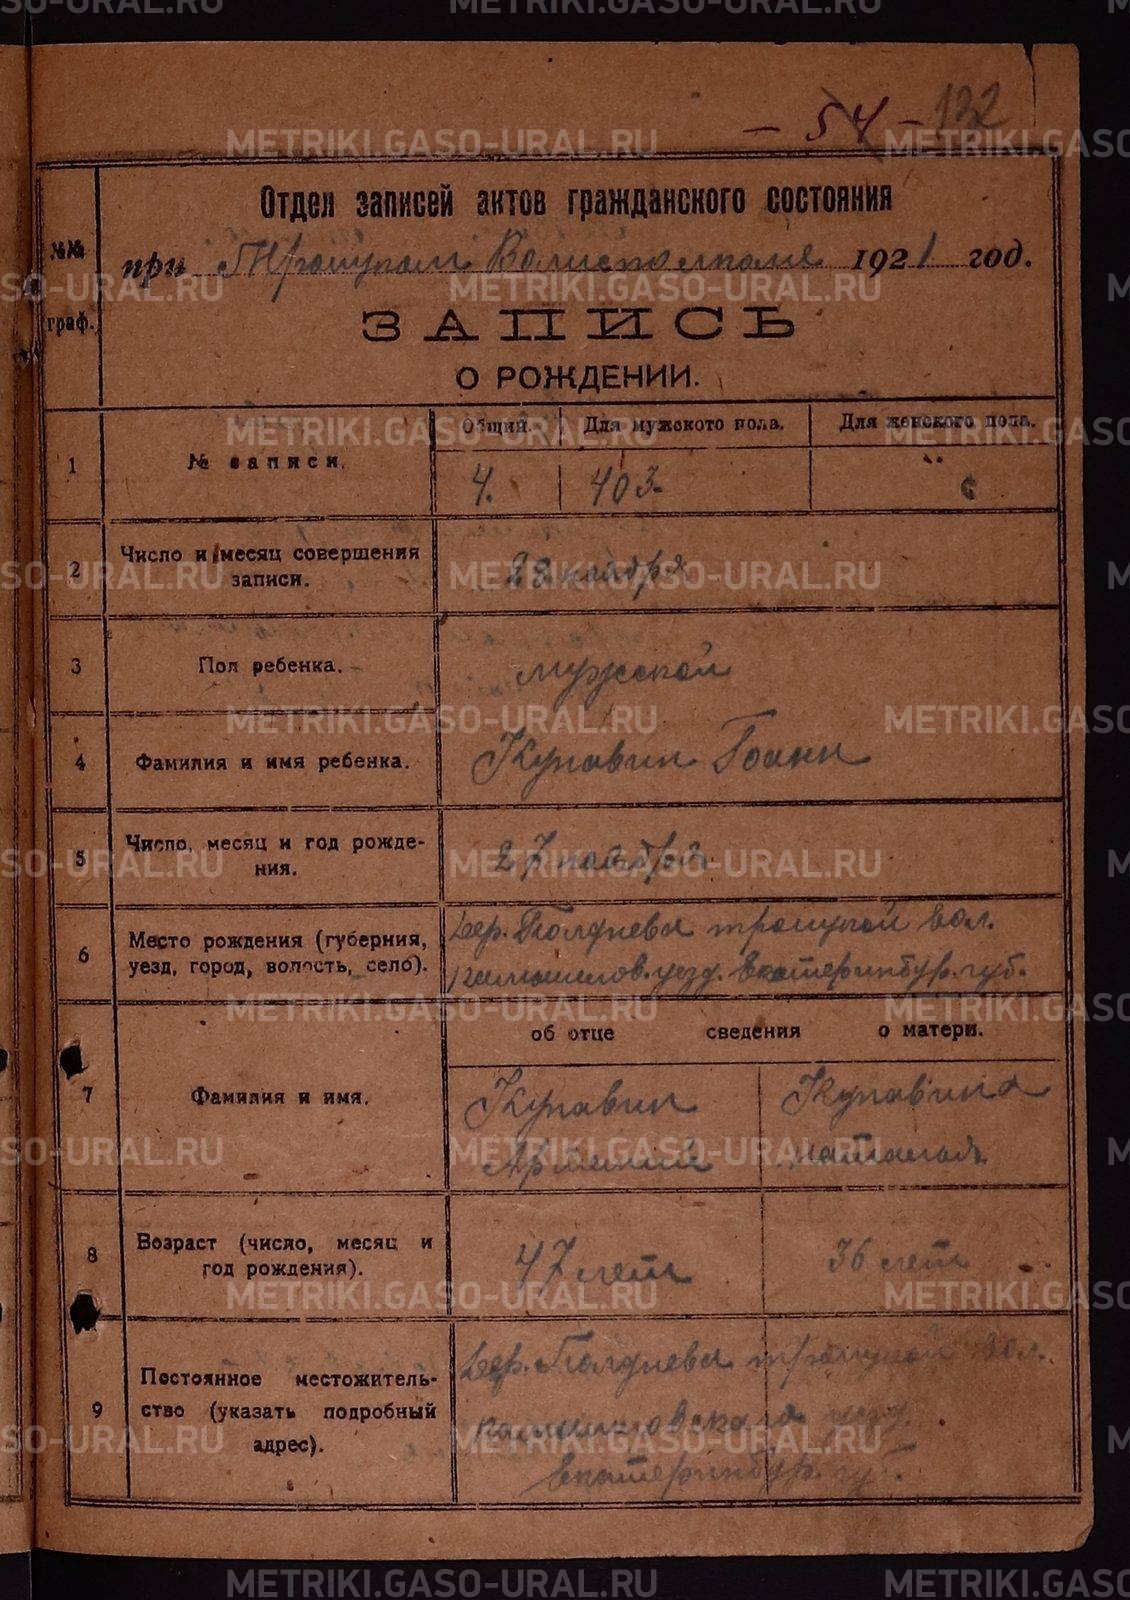 - 54 - 122
Отдел записей актов гражданского состояния
№№ граф.
при Троицком Волисполкоме 1921 год.
ЗАПИСЬ
О РОЖДЕНИИ.
1 № записи.
Общий. Для мужского пола. Для женского пола.
4. 403.
2 Число и месяц совершения записи.
28 ноября
3 Пол ребенка.
мужской
4 Фамилия и имя ребенка.
Купавин Іоанн
5 Число, месяц и год рождения.
27 ноября
6 Место рождения (губерния, уезд, город, волость, село).
дер. Полднева троицкой вол.
камышлов. уезд. Екатеринбур. губ.
об отце сведения о матери.
7 Фамилия и имя.
Купавин Купавина
Артемий Наталья
8 Возраст (число, месяц и год рождения).
47 лет 36 лет
9 Постоянное местожительство (указать подробный адрес).
дер. Полднева троицкой вол.
камышловского уезд.
Екатеринбур. губ.
METRIKI.GASO-URAL.RU